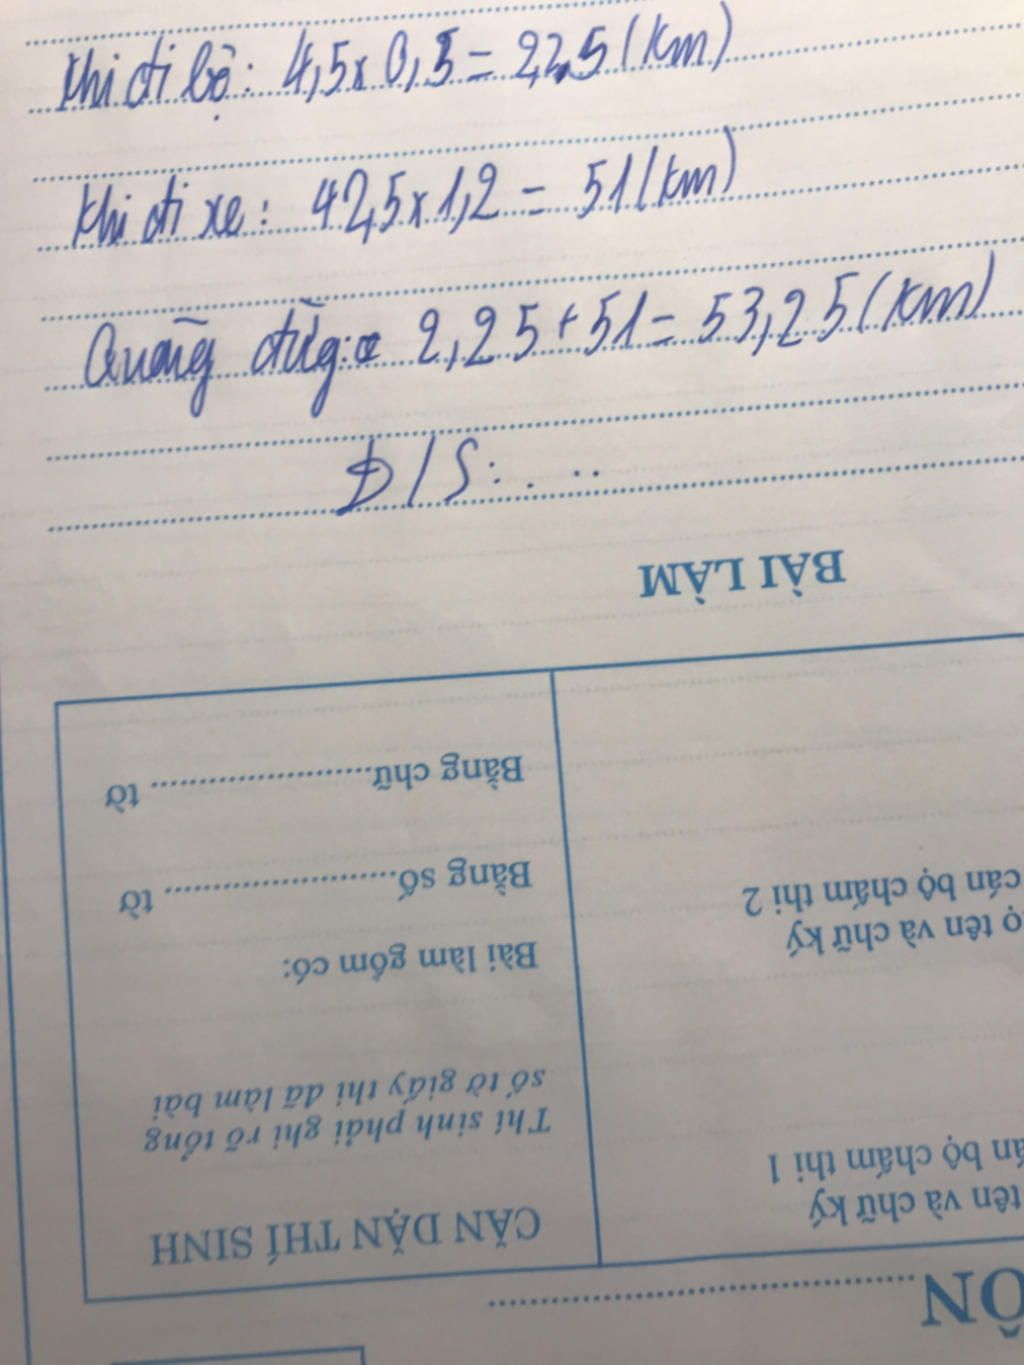 Khi đi bộ: 4,5 x 0,5 = 2,2.5 (km)
Khi đi xe: 42,5 x 1,2 = 51 (km)
Quãng đường: 2,25 + 51 = 53,25 (km)
Đ/S: ...
BÀI LÀM
Bằng chữ.................... tờ
Bằng số.................... tờ
Bài làm gồm có:
Thí sinh phải ghi rõ tổng
số tờ giấy thi đã làm bài
CĂN DẶN THÍ SINH
tên và chữ ký
cán bộ chấm thi 2
tên và chữ ký
bộ chấm thi 1